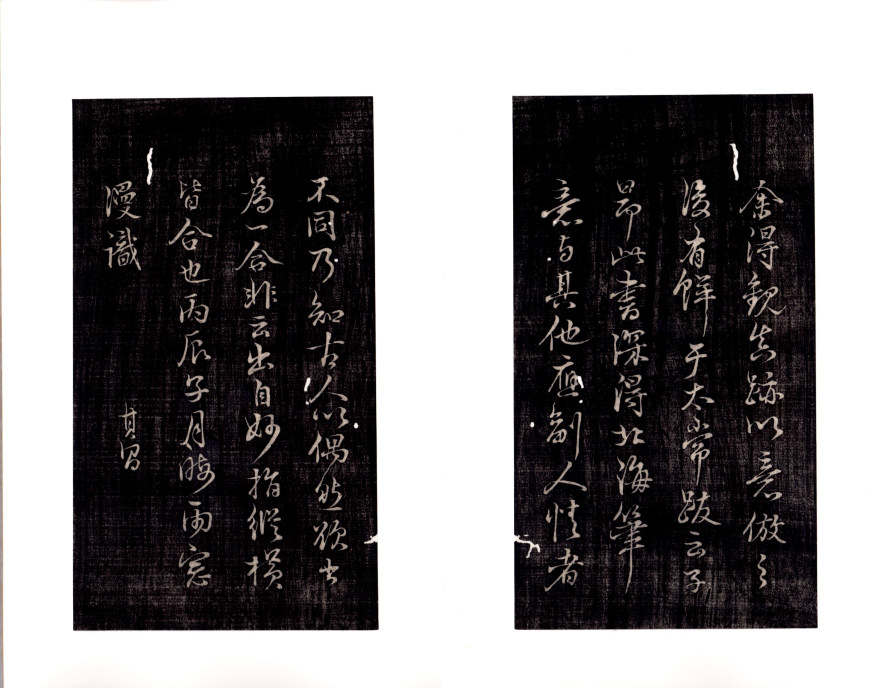 余得観真跡以意倣之
後有鮮于太常跋云子
昂此書深得北海筆
意与其他應副人情者
不同乃知古人以偶然欲書
為一合非云出自妙指縱橫
皆合也丙辰子月晦雨窓
漫識
其昌